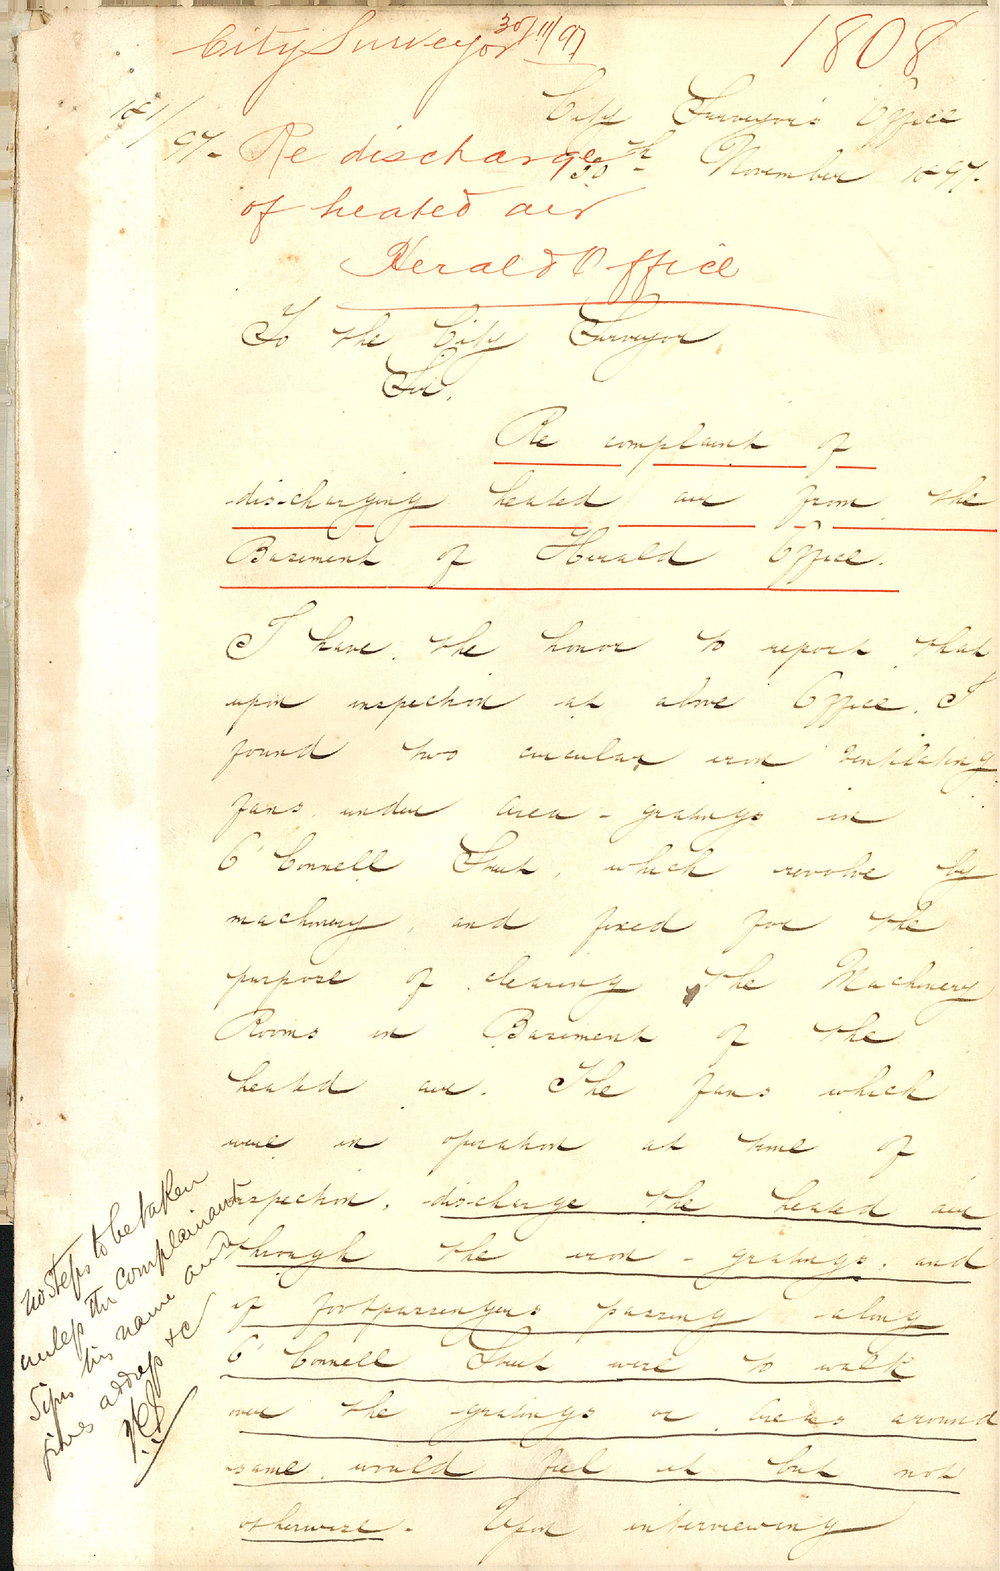 City Surveyor 30/11/97
1808
181/
97-
City Surveyor's Office
30th November 1897.
Re discharge
of heated air
Herald Office
To the City Surveyor
Sir,
Re complaint of
discharging heated air from the
Basement of Herald Office.
I have the honor to report that
upon inspection at above Office, I
found two circular iron ventilating
fans under area-gratings in
O'Connell Street, which revolve by
machinery, and fixed for the
purpose of clearing the Machinery
Rooms in Basement of the
heated air. The fans which
were in operation at time of
inspection, discharge the heated air
through the iron-gratings, and
if footpassengers passing along
O'Connell Street were to walk
over the gratings or areas around
same, would feel it but not
otherwise. Upon interviewing
no steps to be taken
unless the complainant
signs his name and
gives address &c